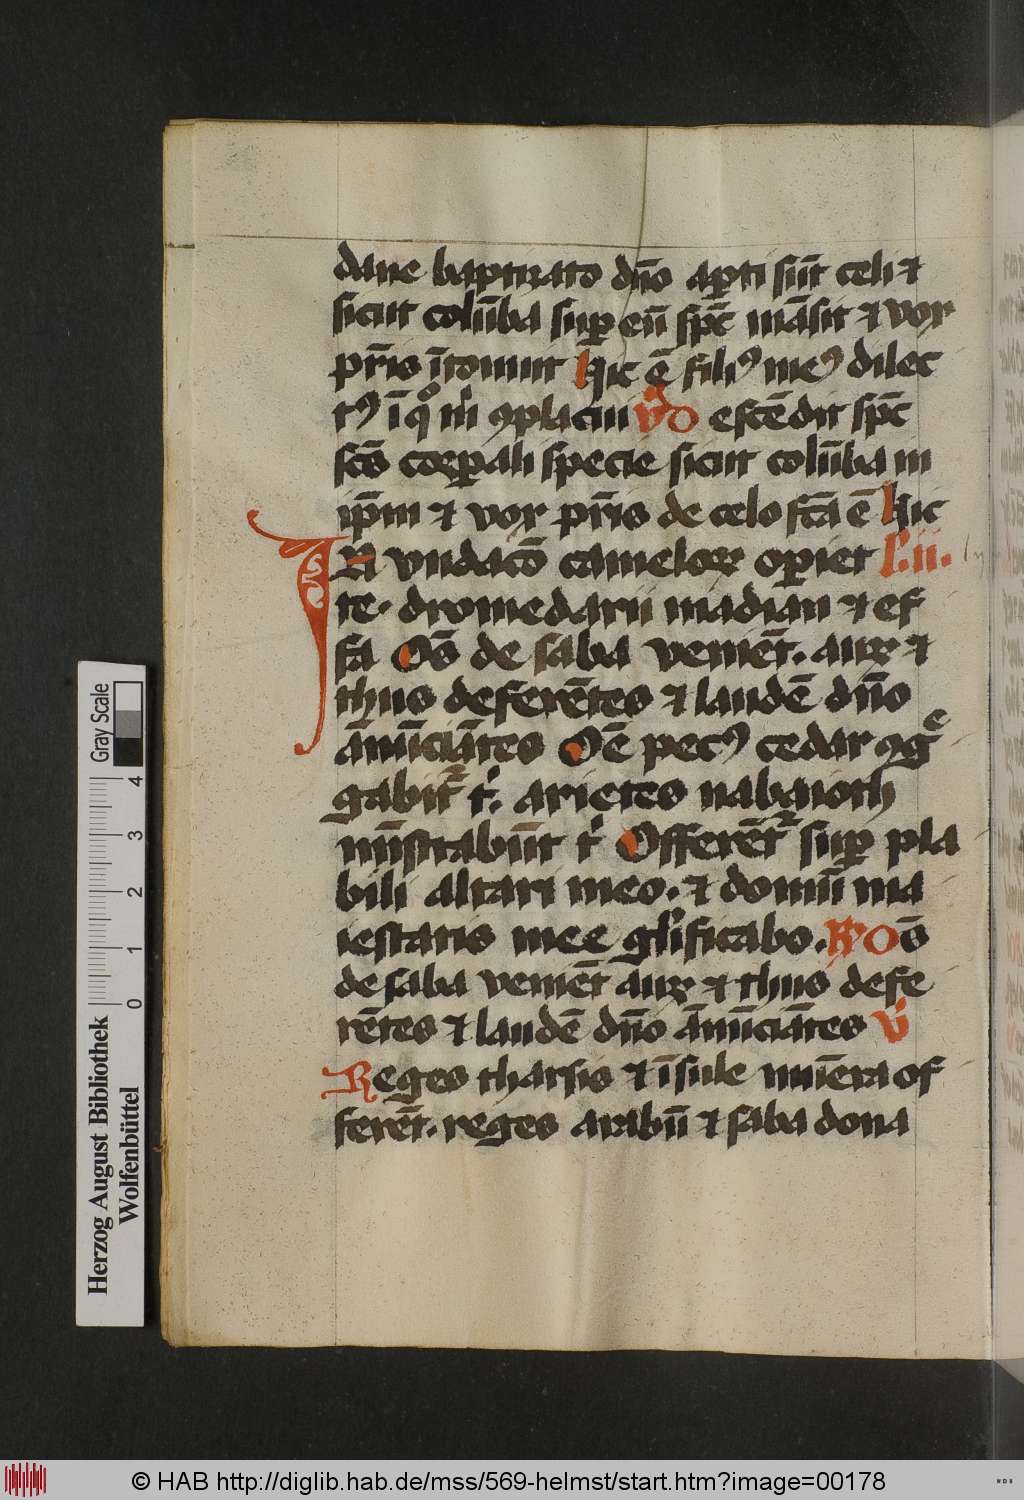 dane baptizato dño aꝑti sūt celi ⁊
sicut colūba suꝑ eū sp̄c māsit ⁊ vox
pr̄is ītonuit Hic ē filiꝰ meꝰ dilec
tꝰ ī qͦ m̄ ꝯplacui v̄ do escēdit sp̄c
scs̄ corꝑali specie sicut colūba in
ip̄m ⁊ vox pr̄is de celo fc̄a ē Hic
IN vndacō cameloꝝ oꝑiet l̄.ii.
te. dromedarii madian ⁊ ef
fa Os̄ de saba veniēt. auꝝ ⁊
thus deferētes ⁊ laudē dño
ānūciātes Oē pecꝰ cedar ꝯgͤ
gabit᷑ t͛. arietes nabaioth
mīstrabūt t͛ Offerēt᷑ suꝑ pla
bili altari meo. ⁊ domū ma
iestatis mee gl̄ificabo. R Os̄
de saba veniēt auꝝ ⁊ thus defe
rētes ⁊ laudē dño ānūciātes v̄
Reges tharsis ⁊ īsule mūera of
ferēt. reges arabū ⁊ saba dona
Gray Scale
4 3 2 1 0
Herzog August Bibliothek
Wolfenbüttel
© HAB http://diglib.hab.de/mss/569-helmst/start.htm?image=00178